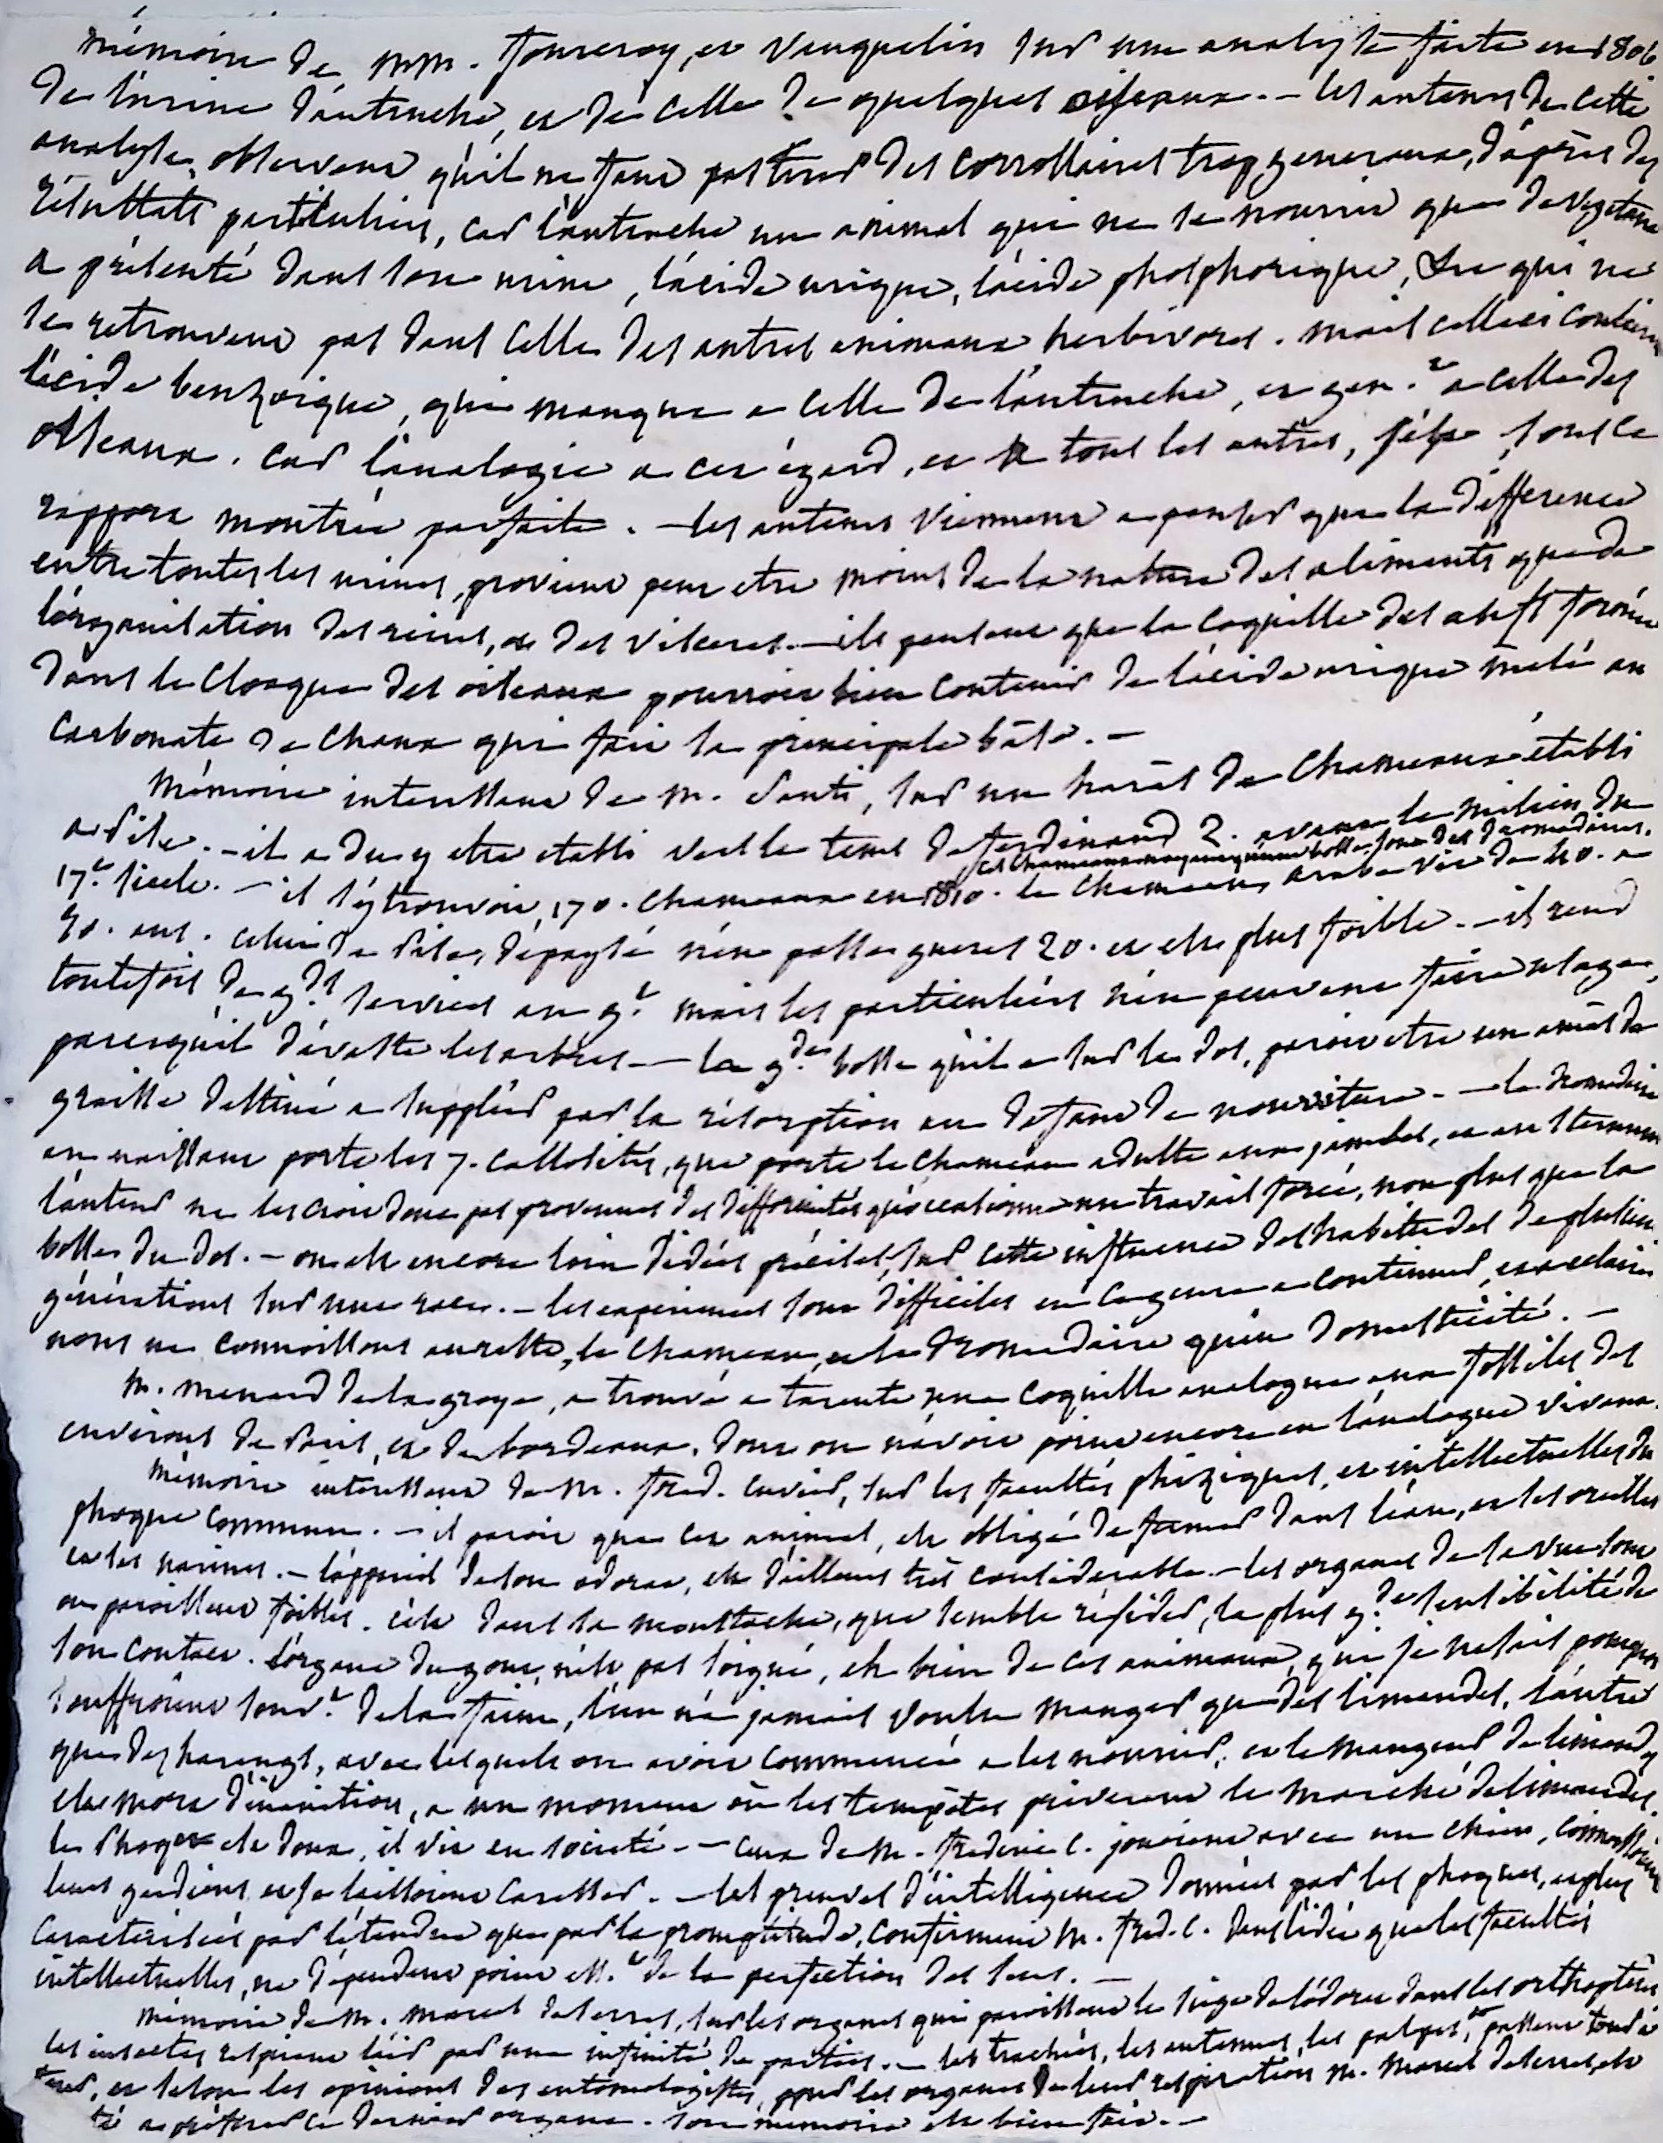 mémoire de mm. fourcroy, et vauquelin sur une analyse faite en 1806
de l'urine d'autruche, et de celle de quelques oiseaux. - les auteurs de cette
analyse, observent qu'il ne faut pas tirer des corrollaires trop generaux, d'après des
résultats particuliers, car l'autruche un animal qui ne se nourrit que de vegetaux
a présenté dans son urine, l'acide urique, l'acide phosphorique, &c qui ne
se retrouvent pas dans celle des autres animaux herbivores. mais celleci contient
l'acide benzoique, qui manque a celle de l'autruche, et gen.t a celle des
oiseaux. car l'analogie a cet égard, et tous les autres, s'est, sous ce
rapport montrée parfaite. - les auteurs viennent a penser que la difference
entre toutes les urines, provient peut etre moins de la nature des aliments que de
l'organisation des reins, et des visceres. - ils pensent que la coquille des œufs formée
dans le cloaque des oiseaux pourroit bien contenir de l'acide urique melé au
carbonate de chaux qui fait la principale base. -
mémoire interessant de m. Santi, sur un haras de chameaux établi
a Pise. - il a du y etre etabli vers le tems de ferdinand 2. avant le milieu du
ces chameaux n'ayant qu'une bosse sont des dromadaires.
17.e siecle. - il s'y trouvoit, 170. chameaux en 1810. le chameau arabe vit de 40. a
50. ans. celui de Pise, dépaysé n'en passe gueres 20. et est plus foible. - il rend
toutefois de g.ds services au g.l mais les particuliers n'en peuvent faire usage,
parcequ'il dévaste les arbres. - la g.de bosse qu'il a sur le dos, paroit etre un amas de
graisse destiné a suppléer par la résorption au defaut de nourriture. - le dromadaire
en naissant porte les 7. callosités, que porte le chameau adulte aux jambes, et au sternum
l'auteur ne les croit donc pas provenues des difformités qu'occasionne un travail forcé, non plus que la
bosse du dos. - on est encore loin d'idées précises, sur cette influence des habitudes de plusieurs
générations sur une race. - les experiences sont difficiles en ce genre a continuer, et a eclaircir
nous ne connoissons au reste, le chameau, et le dromadaire qu'en domesticité. -
m. menard de la groye, a trouvé a tarente une coquille analogue aux fossiles des
environs de Paris, et de bordeaux, dont on n'avoit point encore eu l'analogue vivant.
mémoire interessant de m. fred. cuvier, sur les facultés phiziques, et intellectuelles du
phoque commun. - il paroit que cet animal, est obligé de fermer dans l'eau, et les oreilles
et les narines. - l'appareil de son odorat, est d'ailleurs très considerable. - les organes de la vue sont
ou paroissent foibles. c'est dans la moustache, que semble résider, la plus g.de sensibilité de
son contact. l'organe du gout, n'est pas soigné, eh bien de ces animaux, qui je ne sais pourquoi
souffroient souv.t de la faim, l'un n'a jamais voulu manger que des limandes, l'autre
que des harengs, avec lesquels on avoit commencé a les nourrir, et le mangeur de limandes
est mort d'inanition, a un moment où les tempêtes priverent le marché de limandes.
le Phoque est doux, il vit en société. - ceux de m. frederic C. jouoient avec un chien, connoissoient
leurs gardiens et se laissoient caresser. - les preuves d'intelligence données par les phoques, et plus
caracterisées par l'étendue que par la promptitude, confirment m. fred. C. dans l'idée que les facultés
intellectuelles, ne dépendent point ess.t de la perfection des sens. -
mémoire de m. marcel de serres, sur les organes qui paroissent le siege de l'odorat dans les orthoptères
les insectes respirent l'air par une infinité de parties. - les trachées, les antennes, les palpes, &c passent tour à
tour, et selon les opinions des entomologistes, pour les organes de leur respiration m. marcel de serres, est
té a préferer ce dernier organe. son memoire est bien fait. -